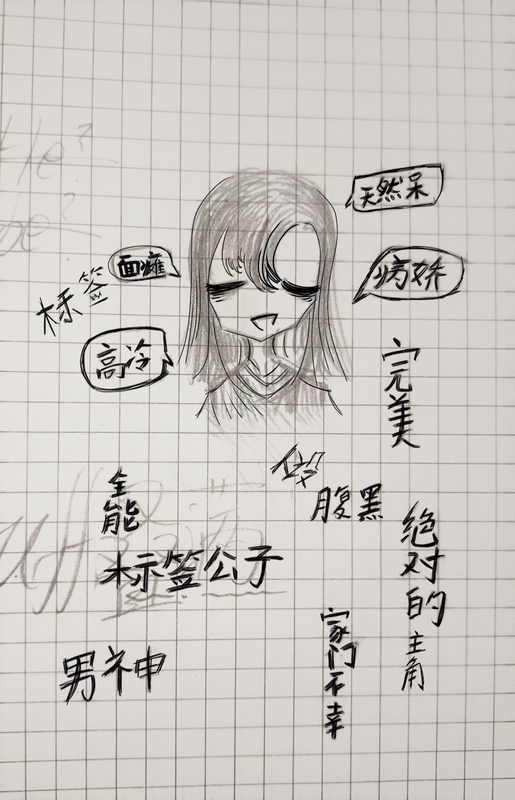 天然呆
面瘫
病娇
标签
高冷
完美
全能
腹黑
绝对的主角
标签公子
家门不幸
男神